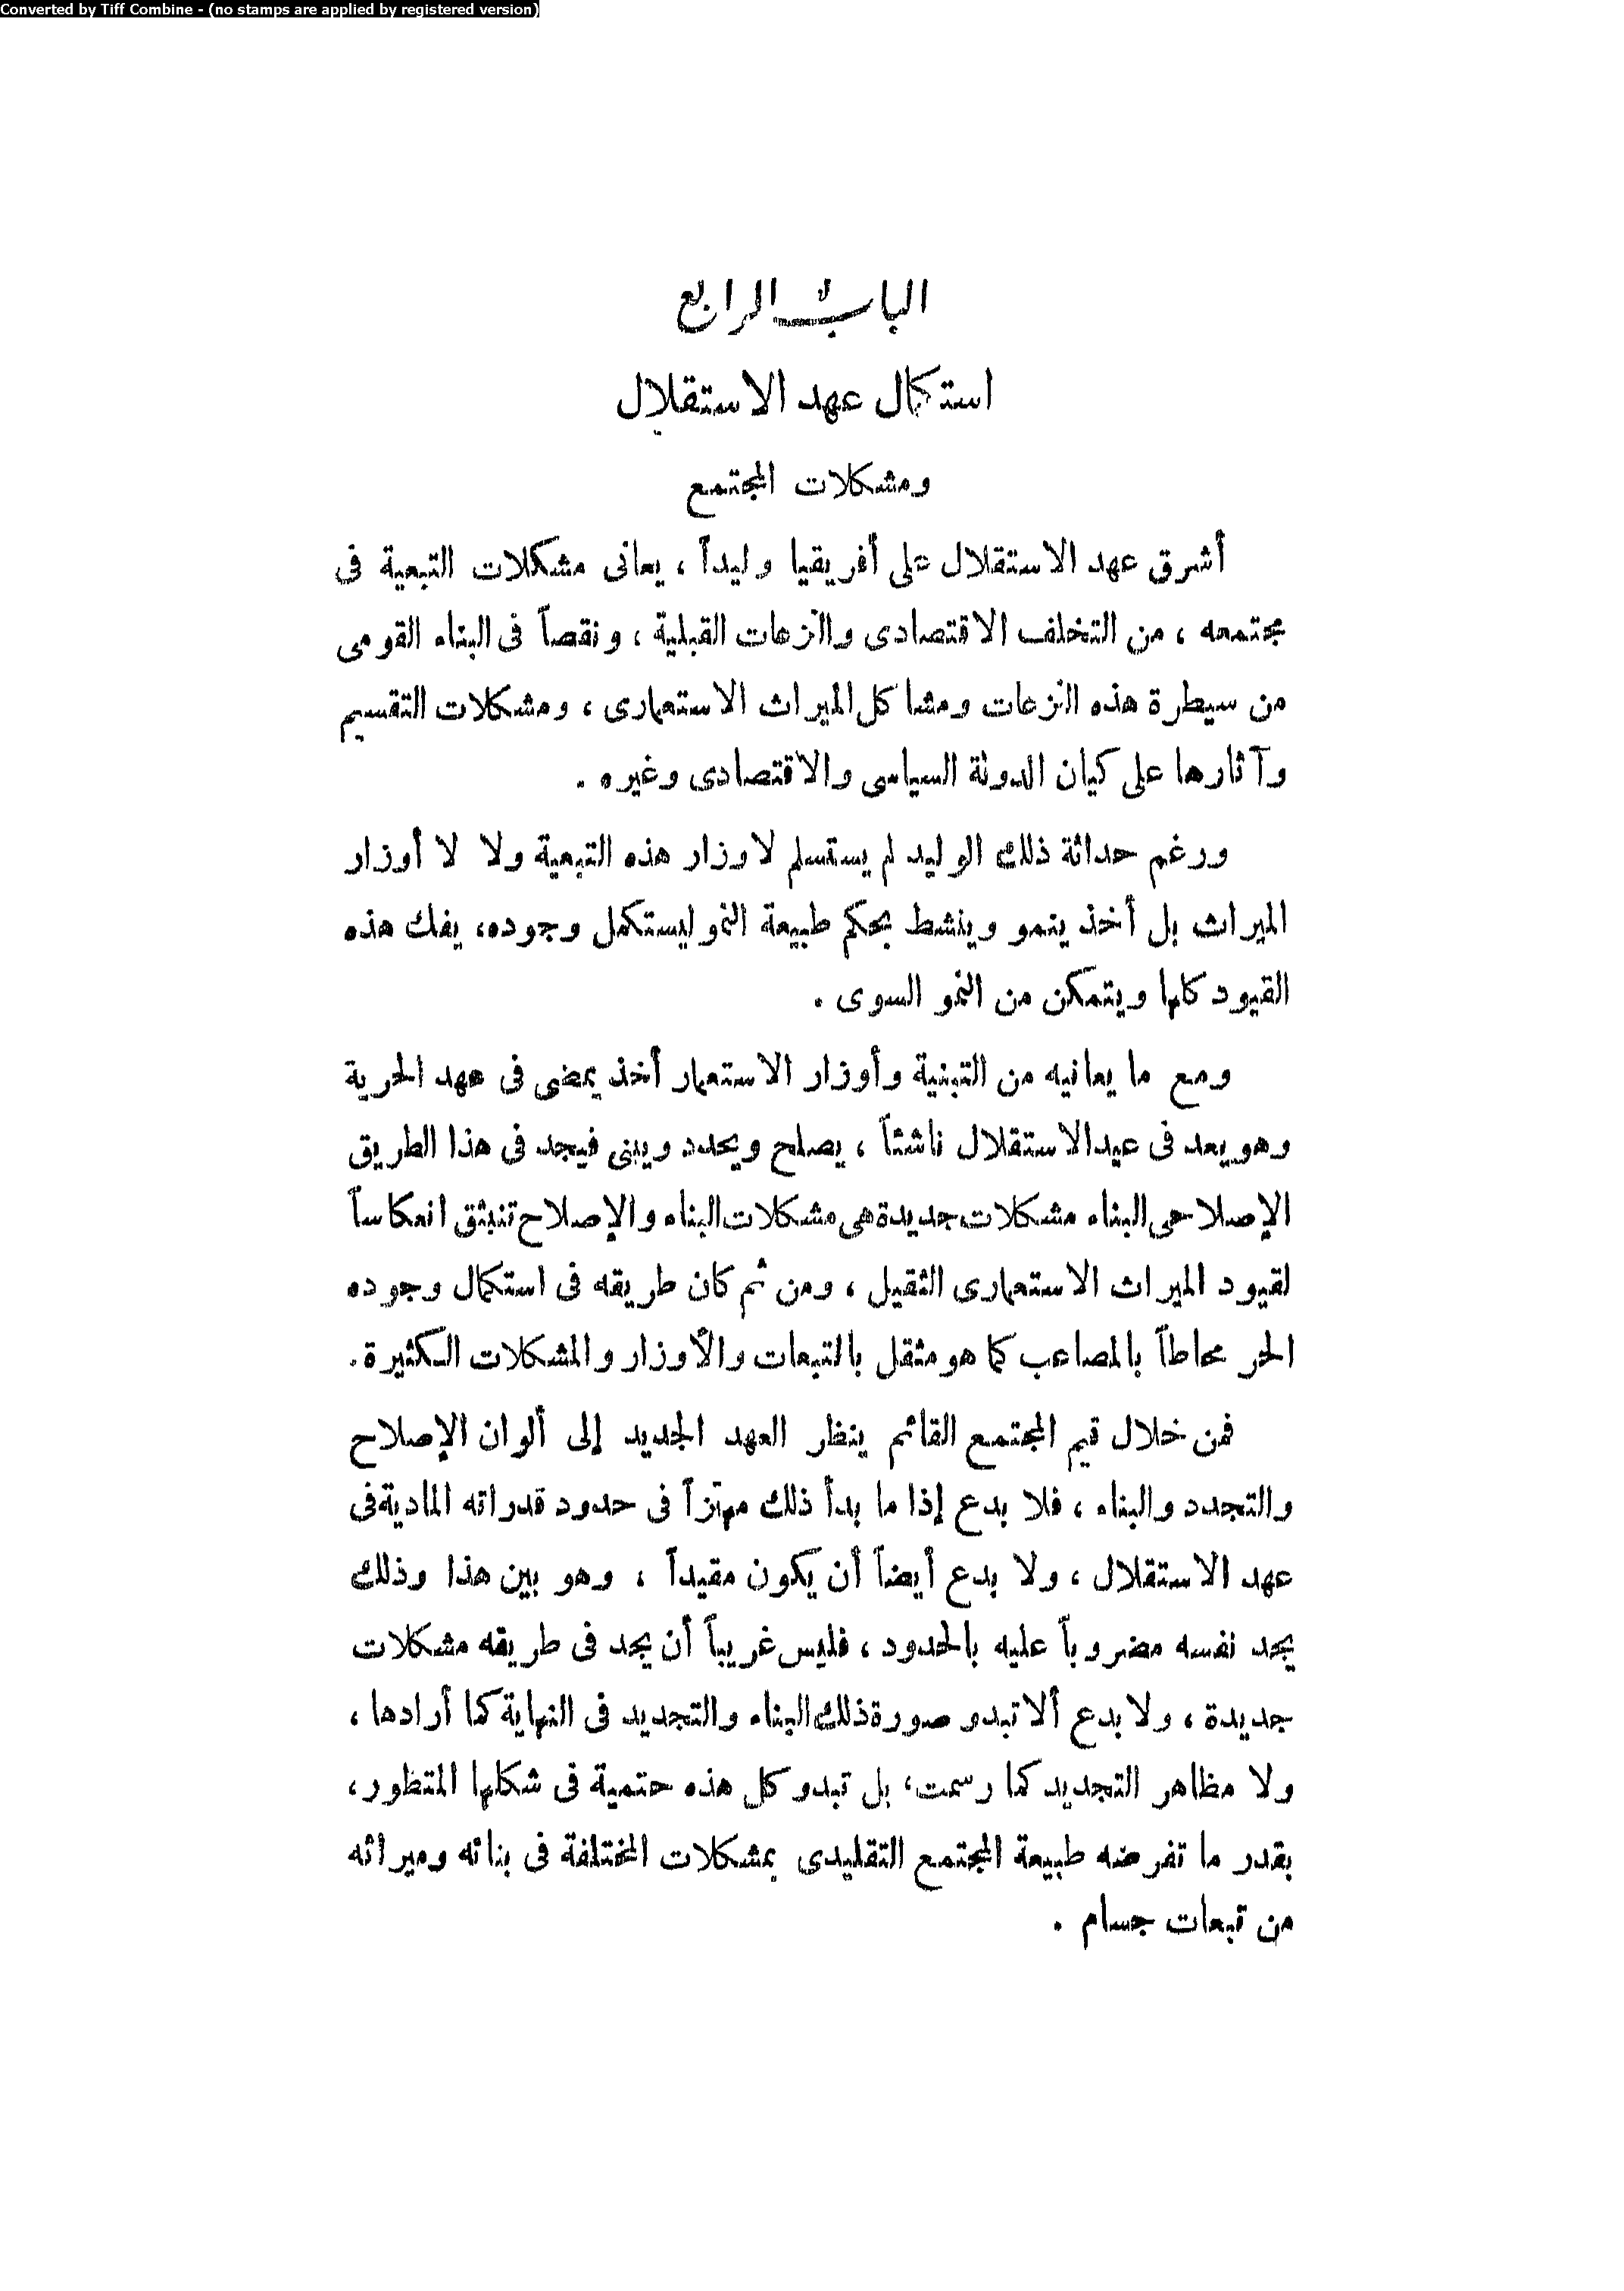 Converted by Tiff Combine - (no stamps are applied by registered version)
الباب الرابع
استكمال عهد الاستقلال
ومشكلات المجتمع
أشرق عهد الاستقلال على أفريقيا وليداً ، يعانى مشكلات التبعية فى
مجتمعه ، من التخلف الاقتصادى والنزعات القبلية ، ونقصاً فى البناء القومى
من سيطرة هذه النزعات ومشاكل الميراث الاستعمارى ، ومشكلات التقسيم
وآثارها على كيان الدولة السياسى والاقتصادى وغيره .
ورغم حداثة ذلك الوليد لم يستسلم لاوزار هذه التبعية ولا لا أوزار
الميراث بل أخذ ينمو وينشط بحكم طبيعة النمو ليستكمل وجوده، يفك هذه
القيود كلها ويتمكن من النمو السوى .
ومع ما يعانيه من التبنية وأوزار الاستعمار أخذ يمضى فى عهد الحرية
وهو يعد فى عيد الاستقلال ناشئاً ، يصلح ويحدد ويبنى فيجد فى هذا الطريق
الإصلاحى البناء مشكلات جديدة هى مشكلات البناء والإصلاح تنبثق انعكاساً
لقيود الميراث الاستعمارى الثقيل ، ومن ثم كان طريقه فى استكمال وجوده
الحر محاطاً بالمصاعب كما هو مثقل بالتبعات والأوزار والمشكلات الكثيرة .
فمن خلال قيم المجتمع القائم ينظر العهد الجديد إلى ألوان الإصلاح
والتجدد والبناء ، فلا بدع إذا ما بدأ ذلك مهتزاً فى حدود قدراته المادية فى
عهد الاستقلال ، ولا بدع أيضاً أن يكون مقيداً ، وهو بين هذا وذلك
يجد نفسه مضروباً عليه بالحدود ، فليس غريباً أن يجد فى طريقه مشكلات
جديدة ، ولا بدع ألا تبدو صورة ذلك البناء والتجديد فى النهاية كما أرادها ،
ولا مظاهر التجديد كما رسمت، بل تبدو كل هذه حتمية فى شكلها المتطور،
بقدر ما تفرضه طبيعة المجتمع التقليدى بمشكلات المختلفة فى بنائه وميراثه
من تبعات جسام .